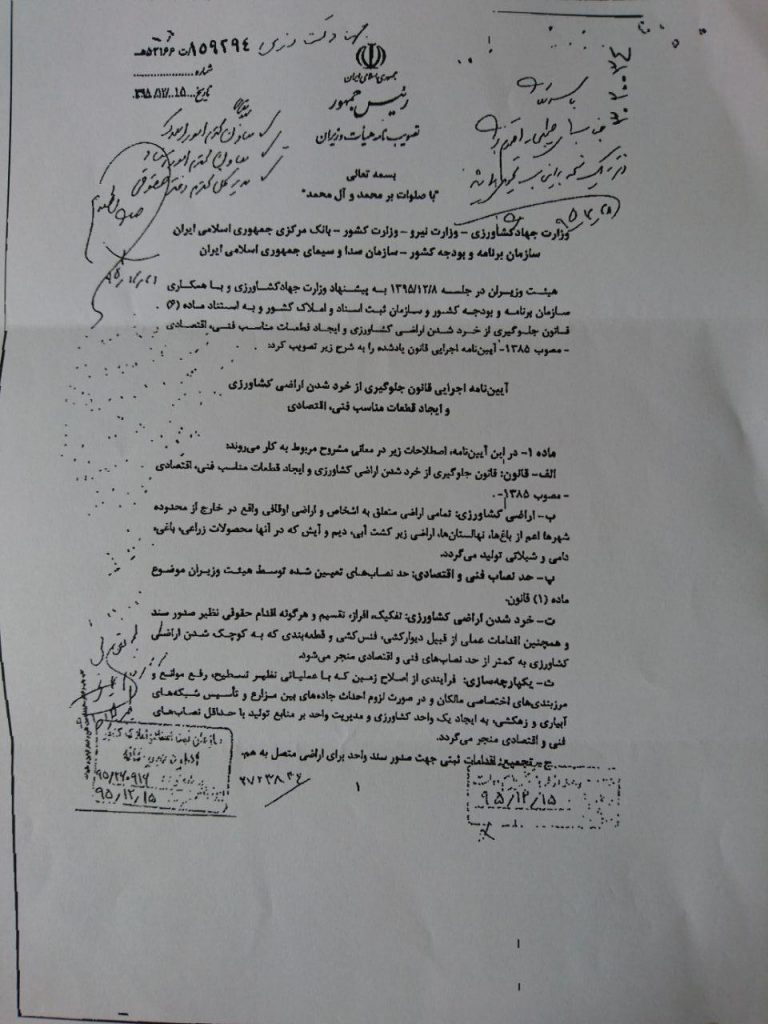 ۸۵۹۲۹۴/ت۵۳۱۶۶هـ
شماره
تاریخ ۱۳۹۵/۱۲/۱۵
جمهوری اسلامی ایران
رئیس جمهور
تصویب نامه هیأت وزیران
بسمه تعالی
"با صلوات بر محمد و آل محمد"
وزارت جهادکشاورزی – وزارت نیرو – وزارت کشور – بانک مرکزی جمهوری اسلامی ایران
سازمان برنامه و بودجه کشور – سازمان صدا و سیمای جمهوری اسلامی ایران
هیئت وزیران در جلسه ۱۳۹۵/۱۲/۸ به پیشنهاد وزارت جهادکشاورزی و با همکاری
سازمان برنامه و بودجه کشور و سازمان ثبت اسناد و املاک کشور و به استناد ماده (۶)
قانون جلوگیری از خرد شدن اراضی کشاورزی و ایجاد قطعات مناسب فنی، اقتصادی
– مصوب ۱۳۸۵- آیین‌نامه اجرایی قانون یادشده را به شرح زیر تصویب کرد:
آیین‌نامه اجرایی قانون جلوگیری از خرد شدن اراضی کشاورزی
و ایجاد قطعات مناسب فنی، اقتصادی
ماده ۱- در این آیین‌نامه، اصطلاحات زیر در معانی مشروح مربوط به کار می‌روند:
الف- قانون: قانون جلوگیری از خرد شدن اراضی کشاورزی و ایجاد قطعات مناسب فنی، اقتصادی
– مصوب ۱۳۸۵-.
ب- اراضی کشاورزی: تمامی اراضی متعلق به اشخاص و اراضی اوقافی واقع در خارج از محدوده
شهرها اعم از باغ‌ها، نهالستان‌ها، اراضی زیر کشت آبی، دیم و آیش که در آنها محصولات زراعی، باغی،
دامی و شیلاتی تولید می‌گردد.
پ- حد نصاب فنی و اقتصادی: حد نصاب‌های تعیین شده توسط هیئت وزیران موضوع
ماده (۱) قانون.
ت- خرد شدن اراضی کشاورزی: تفکیک، افراز، تقسیم و هرگونه اقدام حقوقی نظیر صدور سند
و همچنین اقدامات عملی از قبیل دیوارکشی، فنس‌کشی و قطعه‌بندی که به کوچک شدن اراضی
کشاورزی به کمتر از حد نصاب‌های فنی و اقتصادی منجر می‌شود.
ث- یکپارچه‌سازی: فرآیندی از اصلاح زمین که با عملیاتی نظیر تسطیح، رفع موانع و
مرزبندی‌های اختصاصی مالکان و در صورت لزوم احداث جاده‌های بین مزارع و تأسیس شبکه‌های
آبیاری و زهکشی، به ایجاد یک واحد کشاورزی و مدیریت واحد بر منابع تولید با حداقل نصاب‌های
فنی و اقتصادی منجر می‌گردد.
ج- تجمیع: اقدامات ثبتی جهت صدور سند واحد برای اراضی متصل به هم.
۱
۹۵/۱۲/۱۵
۹۵/۱۲/۱۵